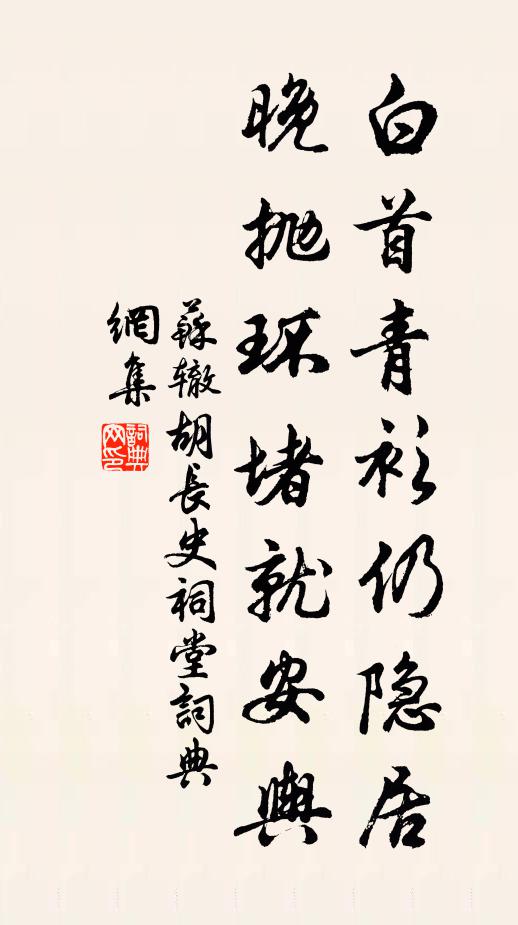 白首青衫仍隐居
晚抛环堵就安舆
蘇辙胡長史祠堂詞典
網集
詞典網印